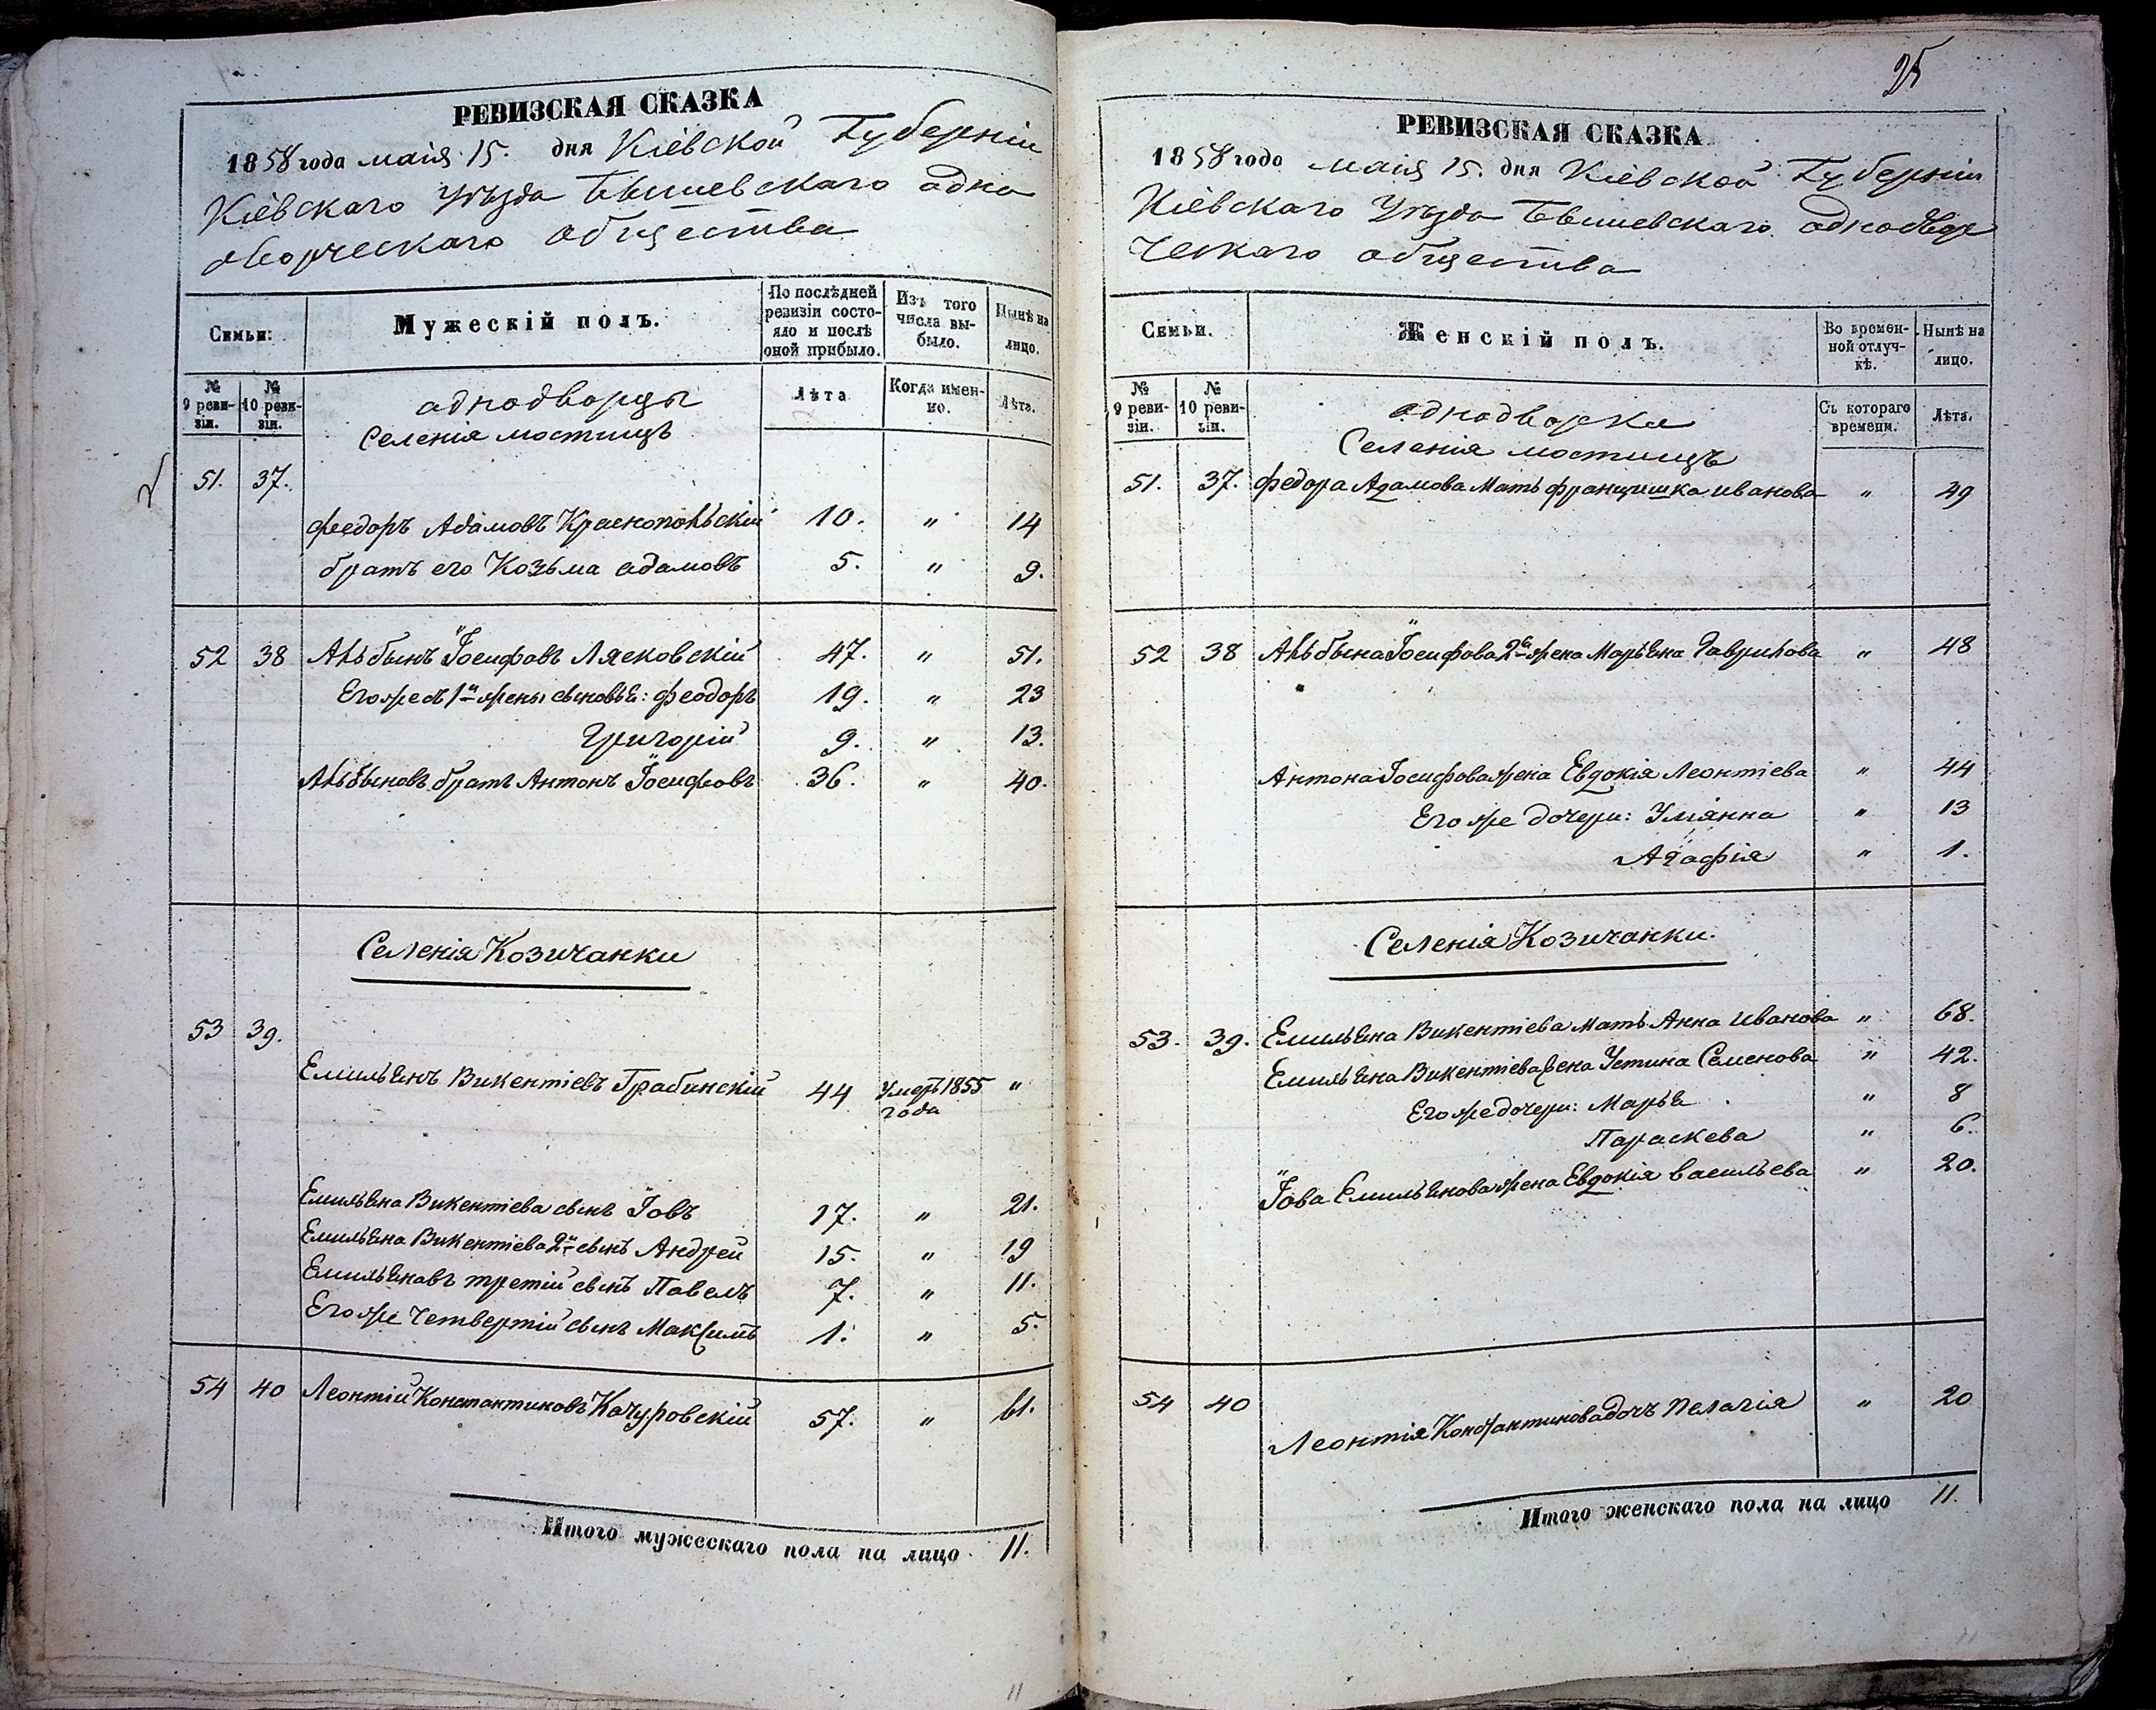 РЕВИЗСКАЯ СКАЗКА
1858 года маія 15. дня Кіевской Губерніи
Кіевскаго Уѣзда Бышевскаго одно
дворческаго общества
Семьи:
Мужескій полъ.
По послѣдней ревизіи состояло и послѣ оной прибыло.
Изъ того числа выбыло.
Нынѣ на лицо.
№ 9 ревизіи.
№ 10 ревизіи.
однодворцы
Селенія мостищъ
Лѣта
Когда именно.
Лѣта.
51. 37.
Феодоръ Адамовъ Краснопольскій 10. " 14
братъ его Козьма адамовъ 5. " 9.
52 38 Альбынъ Іосифовъ Лясковскій 47. " 51.
Его же съ 1й жены сыновья: Феодоръ 19. " 23
Григорій 9. " 13.
Альбыновъ братъ Антонъ Іосифовъ 36. " 40.
Селенія Козичанки
53 39.
Емильянъ Викентіевъ Грабинскій 44 Умеръ 1855 года "
Емильяна Викентіева сынъ Іовъ 17. " 21.
Емильяна Викентіева 2й сынъ Андрей 15. " 19
Емильяновъ третій сынъ Павелъ 7. " 11.
Его же Четвертій сынъ Максимъ 1. " 5.
54 40 Леонтій Константиновъ Качуровскій 57. " 61.
Итого мужескаго пола на лицо 11.
11
25
РЕВИЗСКАЯ СКАЗКА
1858 года маія 15. дня Кіевской Губерніи
Кіевскаго Уѣзда Бышевскаго однодвор
ческаго общества
Семьи.
Женскій полъ.
Во временной отлучкѣ.
Нынѣ на лицо.
№ 9 ревизіи.
№ 10 ревизіи.
однодворки
Селенія мостищъ
Съ котораго времени.
Лѣта.
51. 37. Федора Адамова Мать Францишка иванова " 49
52 38 Альбына Іосифова 2я жена Марьяна Гаврилова " 48
Антона Іосифова жена Евдокія Леонтіева " 44
Его же дочери: Уліянна " 13
Агафія " 1.
Селенія Козичанки.
53. 39. Емильяна Викентіева Мать Анна Иванова " 68.
Емильяна Викентіева жена Устина Семенова " 42.
Его же дочери: Марья " 8
Параскева " 6.
Іова Емильянова жена Евдокія васильева " 20.
54 40
Леонтія Константинова дочь Пелагія " 20
Итого женскаго пола на лицо 11.